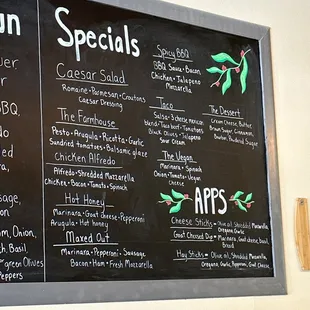 un
Specials
Caesar Salad
Romaine · Parmesan · Croutons
Caesar Dressing
The Farmhouse
Pesto · Arugula · Ricotta · Garlic
Sundried tomatoes · Balsamic glaze
Chicken Alfredo
Alfredo · Shredded Mozzarella
Chicken · Bacon · Tomato · Spinach
Hot Honey
Marinara · Goat Cheese · Pepperoni
Arugula · Hot honey
Maxed Out
Marinara · Pepperoni · Sausage
Bacon · Ham · Fresh Mozzarella
Spicy BBQ
BBQ Sauce · Bacon
Chicken · Jalapeno
Mozzarella
Taco
Salsa · 3 cheese mexican
blend · Taco beef · Tomatoes
Black Olives · Jalapeno
Sour Cream
The Vegan
Marinara · Spinach
Onion · Tomato · Vegan
Cheese
The Dessert
Cream Cheese Butter
Brown Sugar, Cinnamon,
Bourbon, Powdered Sugar
APPS
Cheese Sticks - Olive oil, Shredded Mozzarella,
Oregano, Garlic
Goat Cheese Dip - Marinara, Goat cheese, basil,
Bread
Hay Sticks - Olive oil, Shredded
Oregano, Garlic, Pepperoni,
BBQ,
Onion,
Basil
Green Olives
Peppers